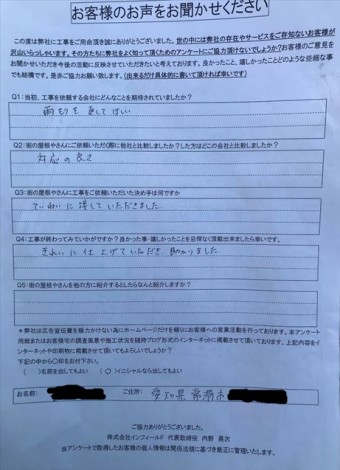 お客様のお声をお聞かせください
この度は弊社に工事をご用命頂き誠にありがとうございました。世の中には弊社の存在やサービスをご存知ないお客様が
沢山いらっしゃいます。その方たちに弊社をよく知って頂くためのアンケートにご協力頂けないでしょうか?お客様のご意見を
お聞かせいただき今後の活動に反映させていただきたいと考えております。良かったこと、嬉しかったことどのような些細な事
でも結構です。是非ご協力お願い致します。(出来るだけ具体的に書いて頂ければ幸いです)
Q1:当初、工事を依頼する会社にどんなことを期待されていましたか?
雨もりを直してほしい
Q2:街の屋根やさんにご依頼いただく際に他社と比較しましたか?した方はどこの会社と比較しましたか?
対応の良さ
Q3:街の屋根やさんに工事をご依頼いただいた決め手は何ですか
ていねいに接していただきました
Q4:工事が終わってみていかがですか?良かった事・嬉しかったことを忌憚なく頂戴出来ましたら幸いです。
きれいに仕上げていただき助かりました
Q5:街の屋根やさんを他の方に紹介するとしたらなんと紹介しますか?
*弊社は広告宣伝費を極力かけない為にホームページだけを頼りにお客様への営業活動を行っております。本アンケート
用紙またはお客様宅の調査風景や施工状況を随時ブログ形式のインターネットに掲載させて頂いております。上記内容をイ
ンターネットや印刷物に掲載させて頂いてもよろしいでしょうか?
下記の中から〇印をお付下さい。
( )名前を出してもよい (○)イニシャルなら出してもよい
お名前: ご住所: 愛知県常滑市
ご協力ありがとうございました。
株式会社インフィールド 代表取締役 内野 高次
当アンケートで取得したお客様の個人情報は関係法規に基づき厳正に管理いたします。